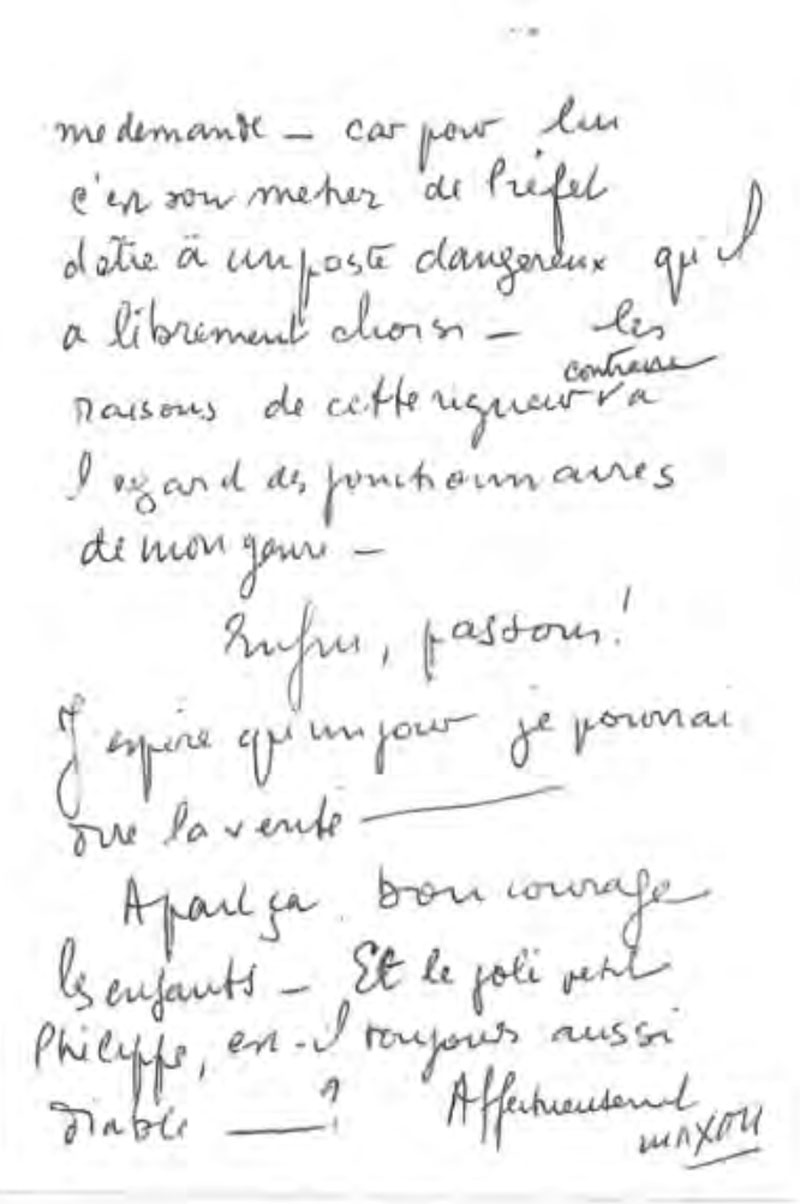 me demande – car pour lui
c'est son metier de Préfet
d'être à un poste dangereux qu'il
a librement choisi – les
contraire
raisons de cette rigueur √ a
l'egard des fonctionnaires
de mon genre –
Enfin, passons!
J'espère qu'un jour je pourrai
dire la verité ———
A part ça bon courage
les enfants – Et le joli petit
Philippe, est-il toujours aussi
diable ——?
Affectueusement
maxou